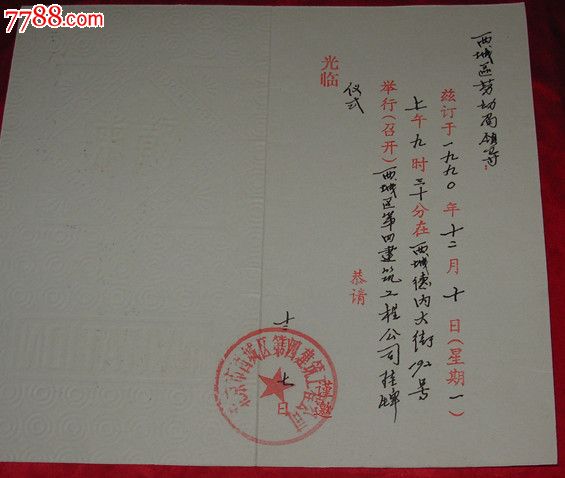 7788.com
西城区劳动局领导：
兹订于一九九〇年十二月十日(星期一)
上午九时三十分在西城德内大街192号
举行(召开)西城区第四建筑工程公司挂牌
仪式
恭请
光临
北京市西城区第四建筑工程公司
谨邀
十二 七日